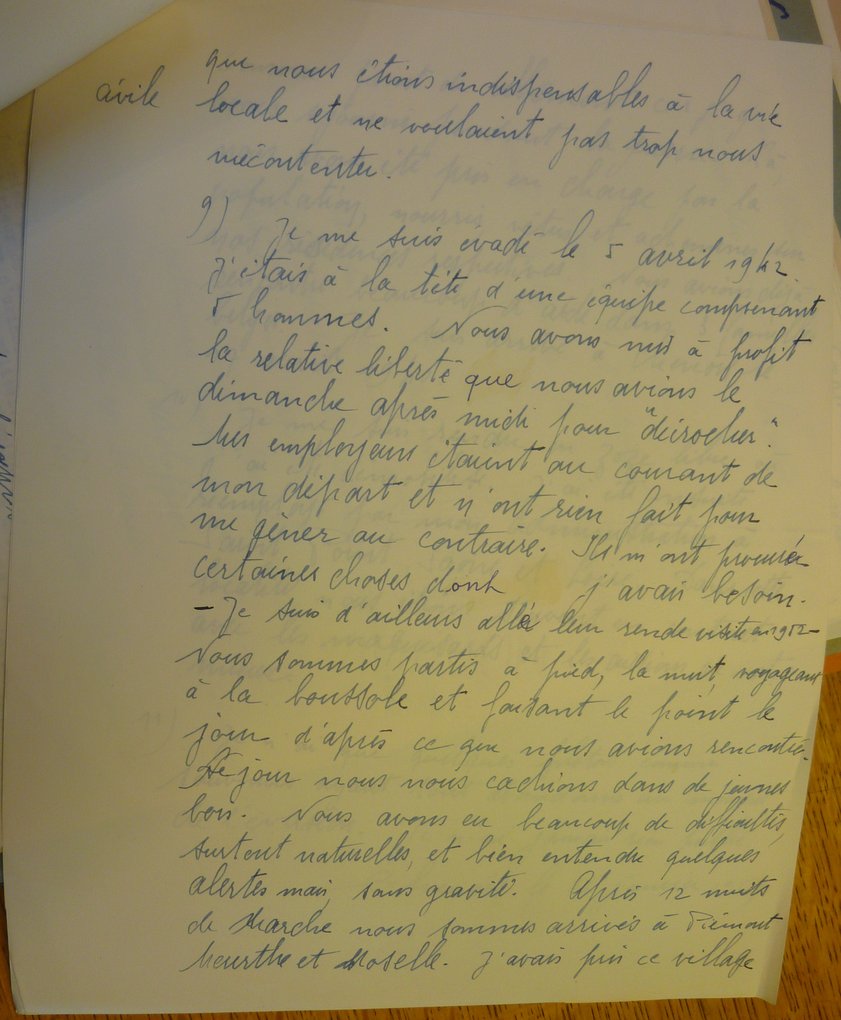 que nous étions indispensables à la vie
civile locale et ne voulaient pas trop nous
mécontenter.
9) Je me suis évadé le 5 avril 1942
J'étais à la tête d'une équipe comprenant
5 hommes. Nous avons mis à profit
la relative liberté que nous avions le
dimanche après midi pour "décrocher".
Mes employeurs étaient au courant de
mon départ et n'ont rien fait pour
me gêner au contraire. Ils m'ont procuré
certaines choses dont j'avais besoin.
- Je suis d'ailleurs allé leur rendre visite en 1952 -
Nous sommes partis à pied, la nuit, voyageant
à la boussole et faisant le point le
jour d'après ce que nous avions rencontré.
Le jour nous nous cachions dans de jeunes
bois. Nous avons eu beaucoup de difficultés,
surtout naturelles, et bien entendu quelques
alertes mais sans gravité. Après 12 nuits
de marche nous sommes arrivés à Piémont
Meurthe et Moselle. J'avais pris ce village